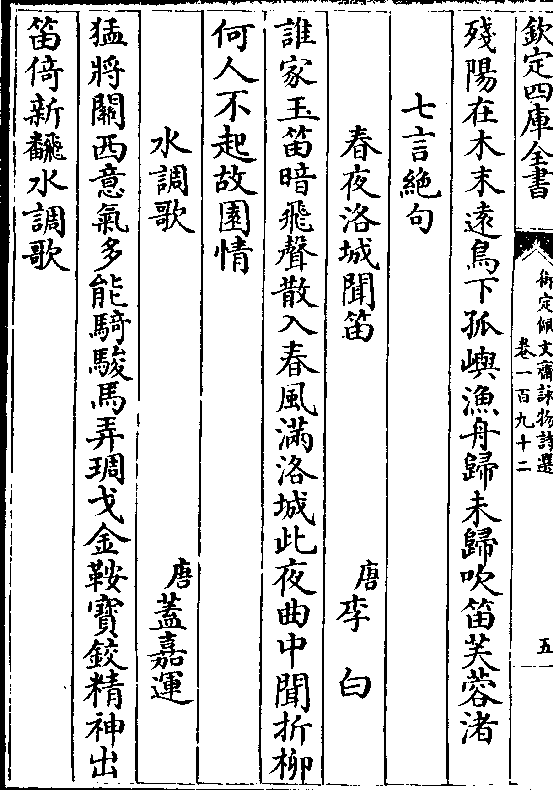 欽定四庫全書
御定佩文齋詠物詩選
卷一百九十二
五
殘陽在木末遠鳥下孤嶼漁舟歸未歸吹笛芙蓉渚
七言絶句
春夜洛城聞笛
唐李白
誰家玉笛暗飛聲散入春風滿洛城此夜曲中聞折柳
何人不起故園情
水調歌
唐蓋嘉運
猛將關西意氣多能騎駿馬弄琱戈金鞍寶鉸精神出
笛倚新飜水調歌